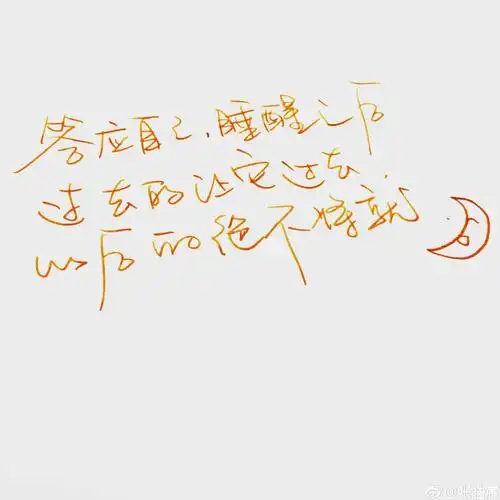 答应自己，睡醒之后
过去的让它过去
以后的绝不将就